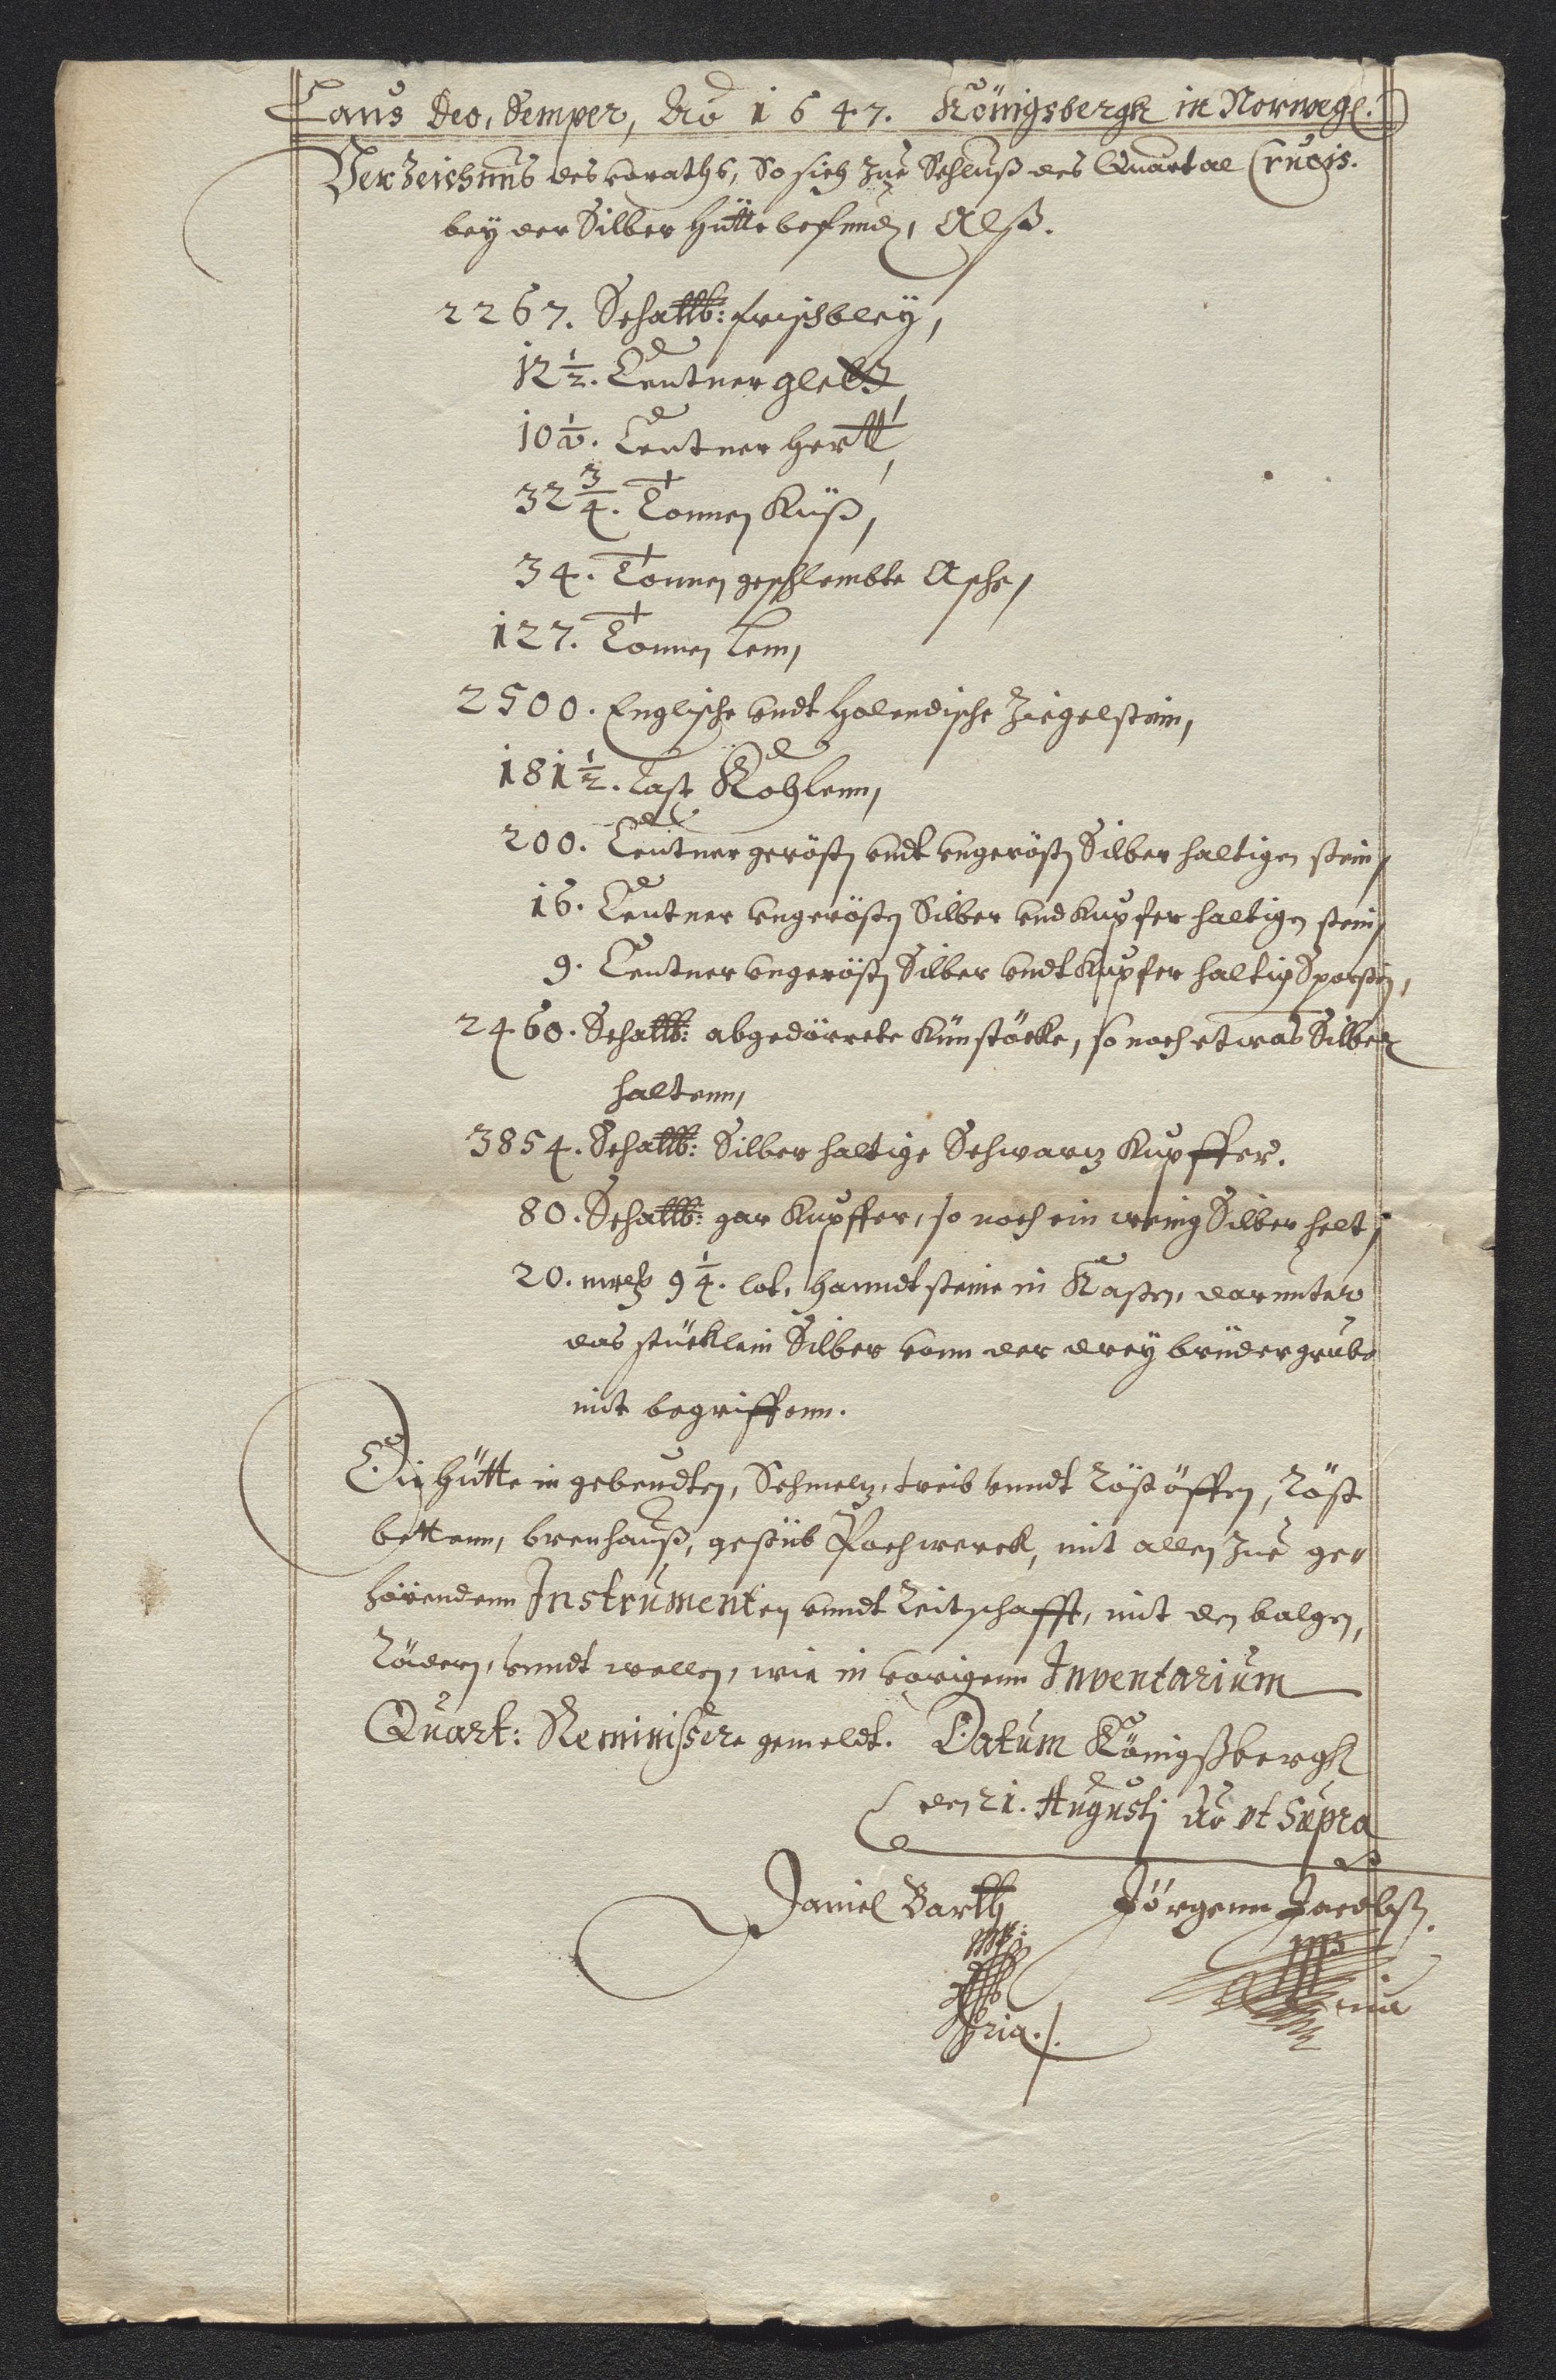 Laus Deo, Semper, Ao 1647. Königsbergk in Norwegē.
Verzeichnus des vorraths, So sich zue Schluß des Quartal Crucis.
bey der Silber Hütte befindē, Alß.
2267. Schallb: frischbleÿ,
12 1/2. Centner glett,
10 1/2. Centner Hertt,
32 3/4. Tonnen Küß,
34. Tonnen geschlembte Asche,
127. Tonnen Lem,
2500. Englische vndt Holendische Ziegelstein,
181 1/2. Last Kohlenn,
200. Centner geröstē vndt vngeröstē Silber haltigen stein,
16. Centner vngeröstē Silber vnd Kupfer haltigen stein,
9. Centner vngeröstē Silber vndt Kupfer haltig
2460. Schallb: abgedörrete Künstöcke, so noch etwas Silber
haltenn,
3854. Schallb: Silber haltige Schwartz Kupffer.
80. Schallb: gar Kupffer, so noch ein wenig Silber helt,
20. mrck 9 1/4. lot, Hanndtsteine in Kasten, darunter
das stücklein Silber vonn der dreÿ brüder grube
mit begriffenn.
Die Hütte in gebeudten, Schmeltz, treib vnndt Röstöffen, Röst
bettenn, brenhauß, gestüb Pochwerck, mit allen zue ge-
hörendenn Instrumenten vnndt Zeitschafft, mit den balgen,
Rädern, vnndt wellen, wie in vorigenn Inventarium
Quart: Reminiscere gemeldt. Datum Königßbergk
den 21. Augusti Ao vt Supra
Daniel Barth Jörgenn Jacobß.
mp:
pria.